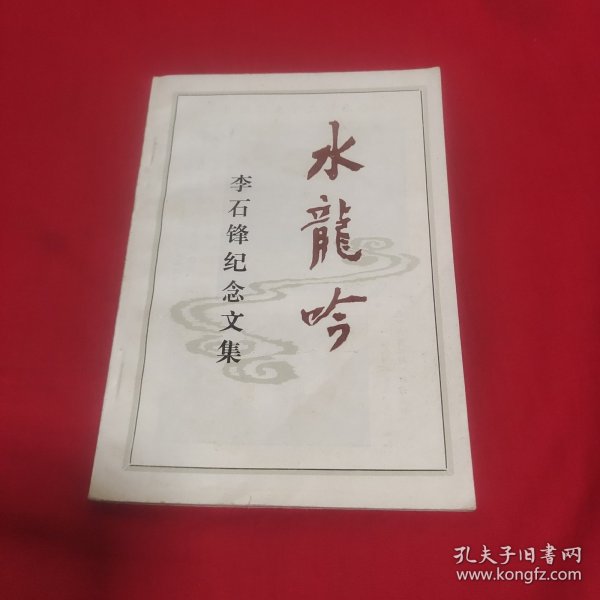 水龍吟
李石锋纪念文集
孔夫子旧書网
www.kongfz.com